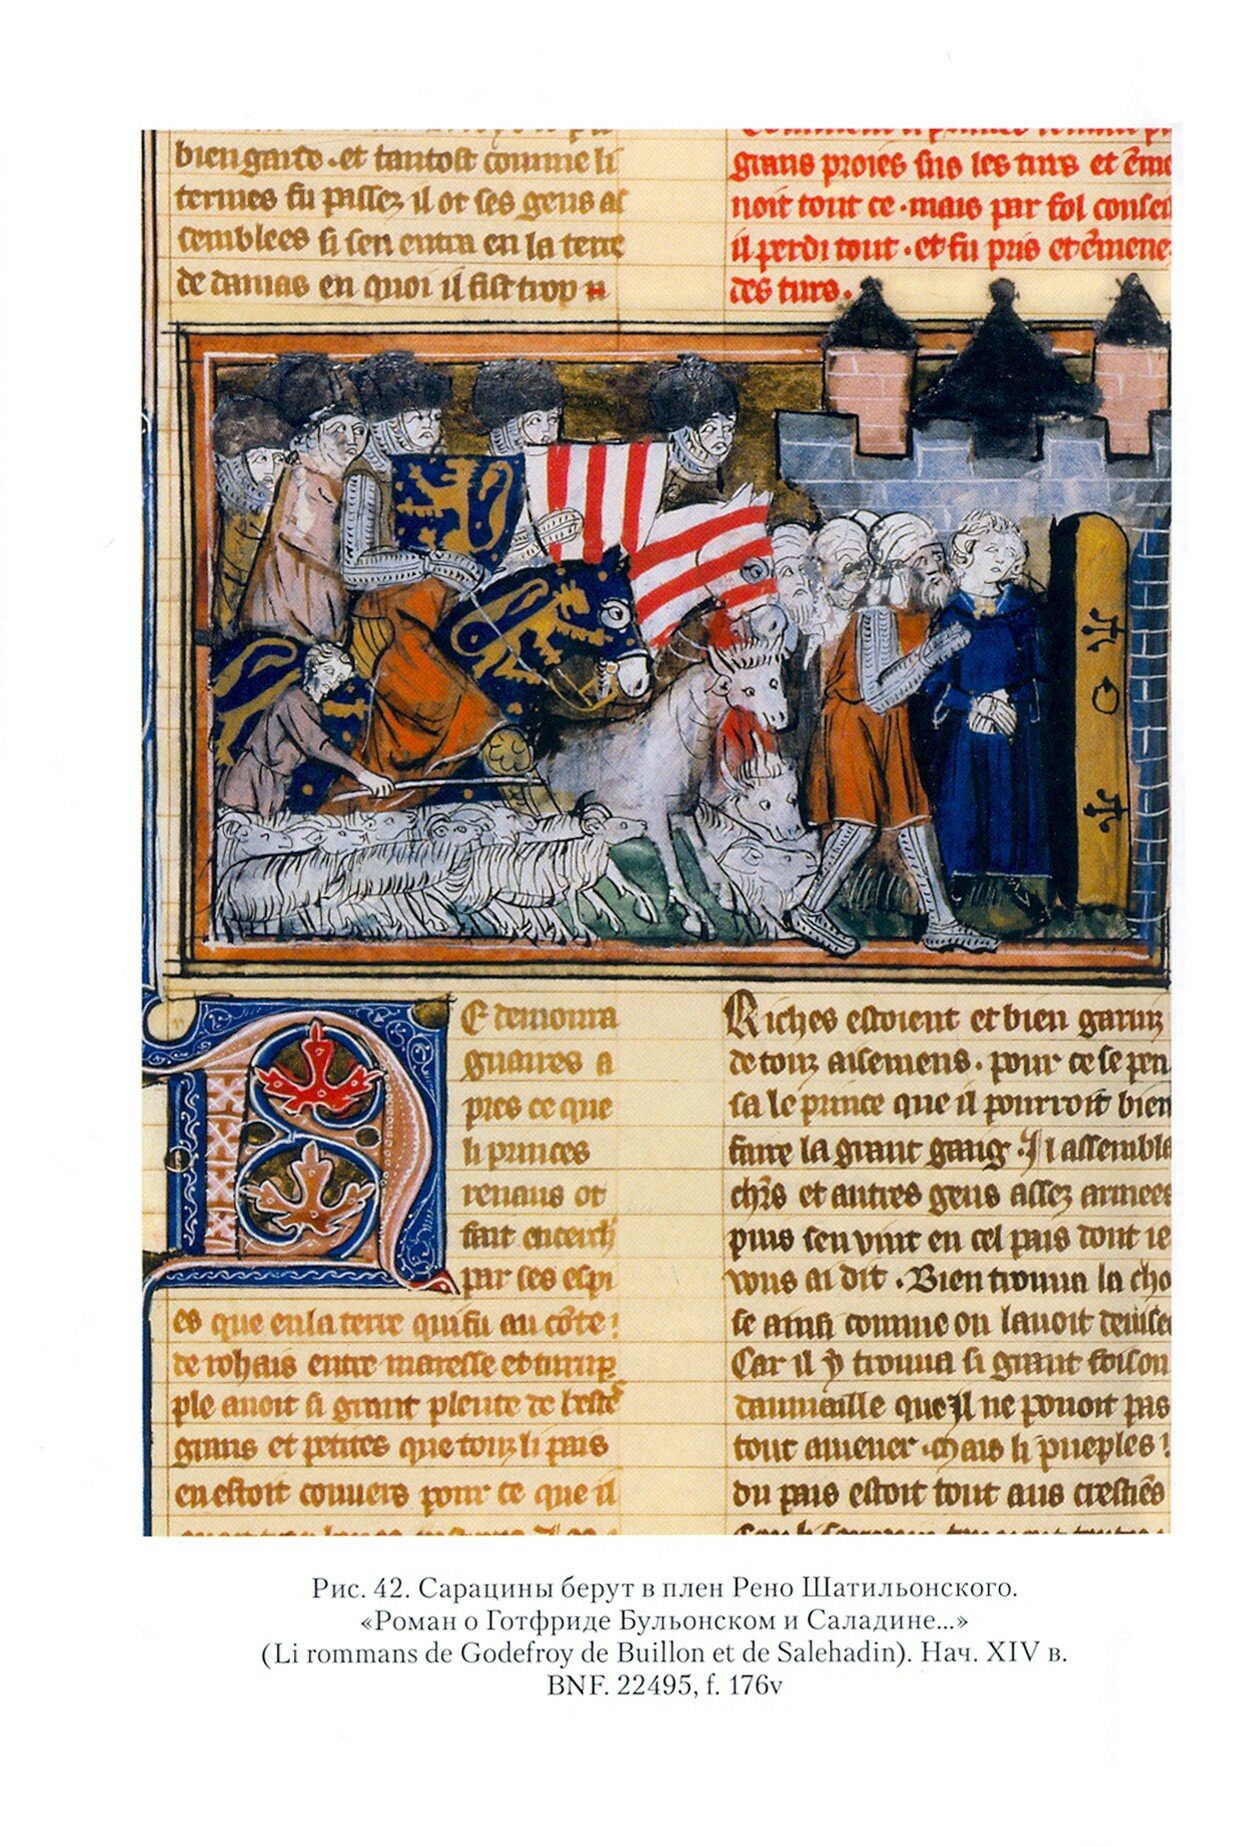 bien garde · et tantost comme li
termes fu passez il ot ses gens as
semblees si sen entra en la terre
de damas en quoi il fist trop
grans proies sus les turs et ẽme
noit tout ce · mais par fol conseil
il perdi tout · et fu pris et ẽmene
des turs ·
E demoura
guaires a
pres ce que
li princes
renaus ot
fait
par ses espi
es que en la terre qui fu au cõte
de rohais entre maresse et
ple avoit si grant plente de
grans et petites que touz li pais
en estoit couvers pour ce que il
Riches estoient et bien garniz
de touz aisemens · pour ce se pen
sa le prince que il pourroit bien
faire la grant gaaig · Il assembla
chrs et autres gens assez armees
puis sen vint en cel pais dont ie
vous ai dit · Bien trouva la cho
se ainsi comme on lavoit devisee
Car il y trouva si grant foison
daumaille que il ne pouoit pas
tout amener · Mais li pueples
du pais estoit tout aus crestiẽs
Рис. 42. Сарацины берут в плен Рено Шатильонского.
«Роман о Готфриде Бульонском и Саладине...»
(Li rommans de Godefroy de Buillon et de Salehadin). Нач. XIV в.
BNF. 22495, f. 176v